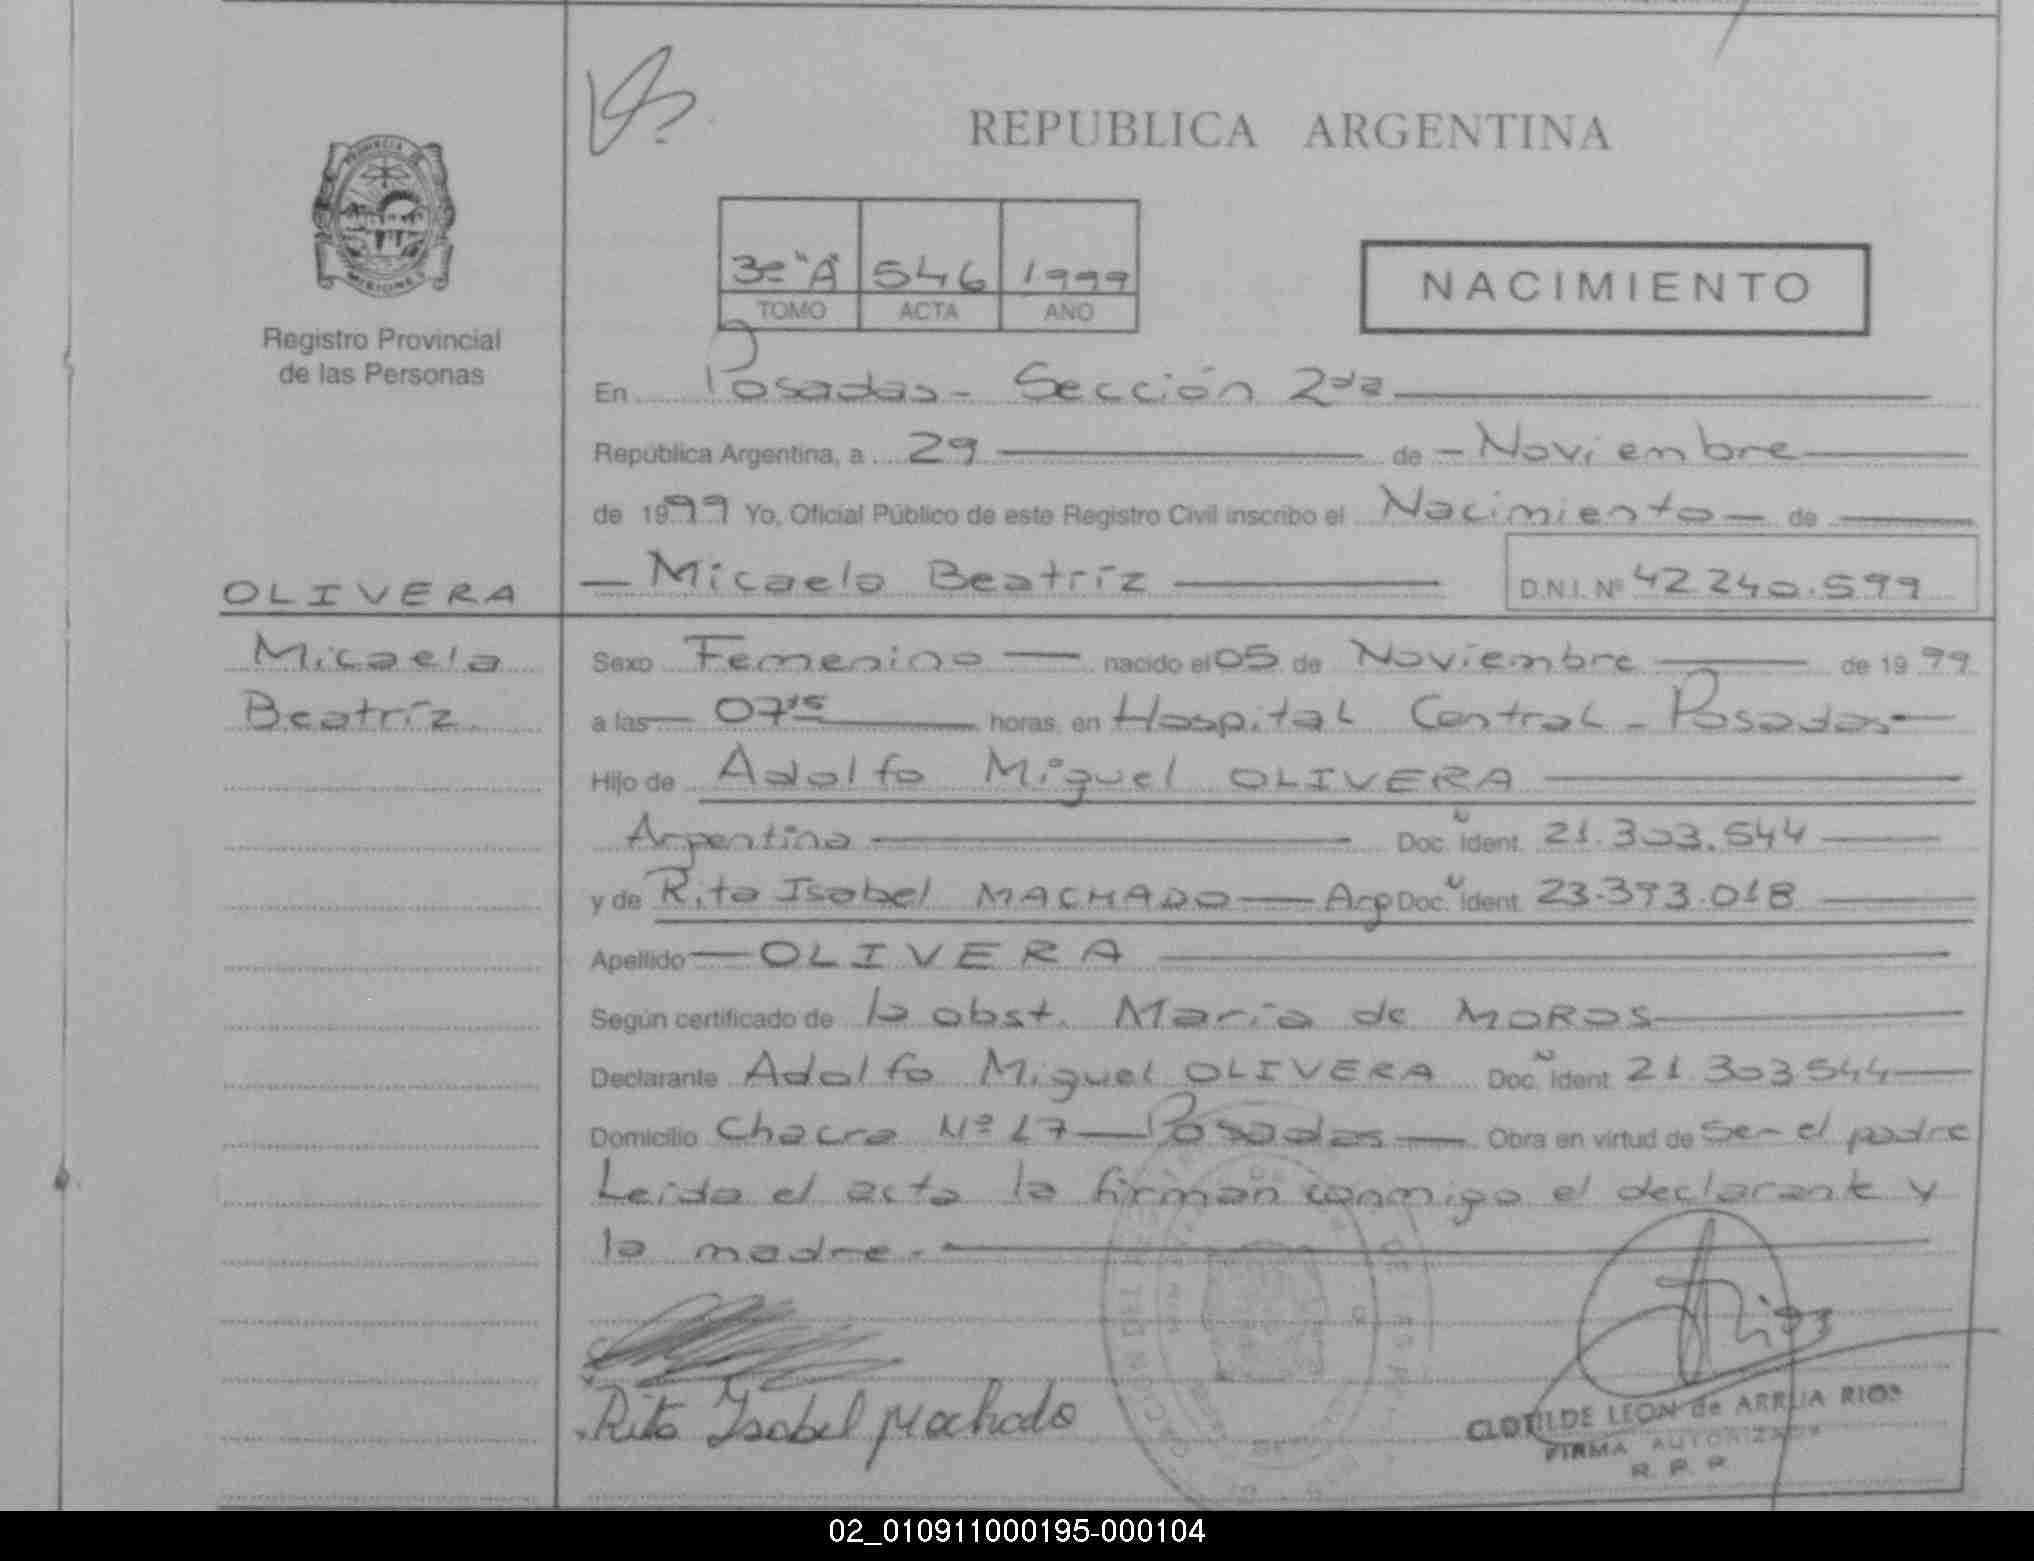 REPUBLICA ARGENTINA
PROVINCIA DE
MISIONES
Registro Provincial
de las Personas
3º "A" 546 1999
TOMO ACTA AÑO
NACIMIENTO
En Posadas - Sección 2da
República Argentina, a 29 de - Noviembre
de 1999 Yo, Oficial Público de este Registro Civil inscribo el Nacimiento - de
Micaela Beatríz D.N.I. Nº 42.240.599
OLIVERA
Micaela
Beatríz
Sexo Femenino nacido el 05 de Noviembre de 1999
a las 07 15 horas, en Hospital Central - Posadas
Hijo de Adolfo Miguel OLIVERA
Argentino Doc. Ident. 21.303.544
y de Rita Isabel MACHADO - Arg Doc. Ident. 23.393.018
Apellido OLIVERA
Según certificado de la obst. María de MOROS
Declarante Adolfo Miguel OLIVERA Doc. Ident. 21.303544
Domicilio Chacra Nº 17 - Posadas Obra en virtud de ser el padre
Leída el acta la firman conmigo el declarante y
la madre.
Rita Isabel Machado
CLOTILDE LEON de ARRUA RIOS
FIRMA AUTORIZADA
R. P. P.
02_010911000195-000104